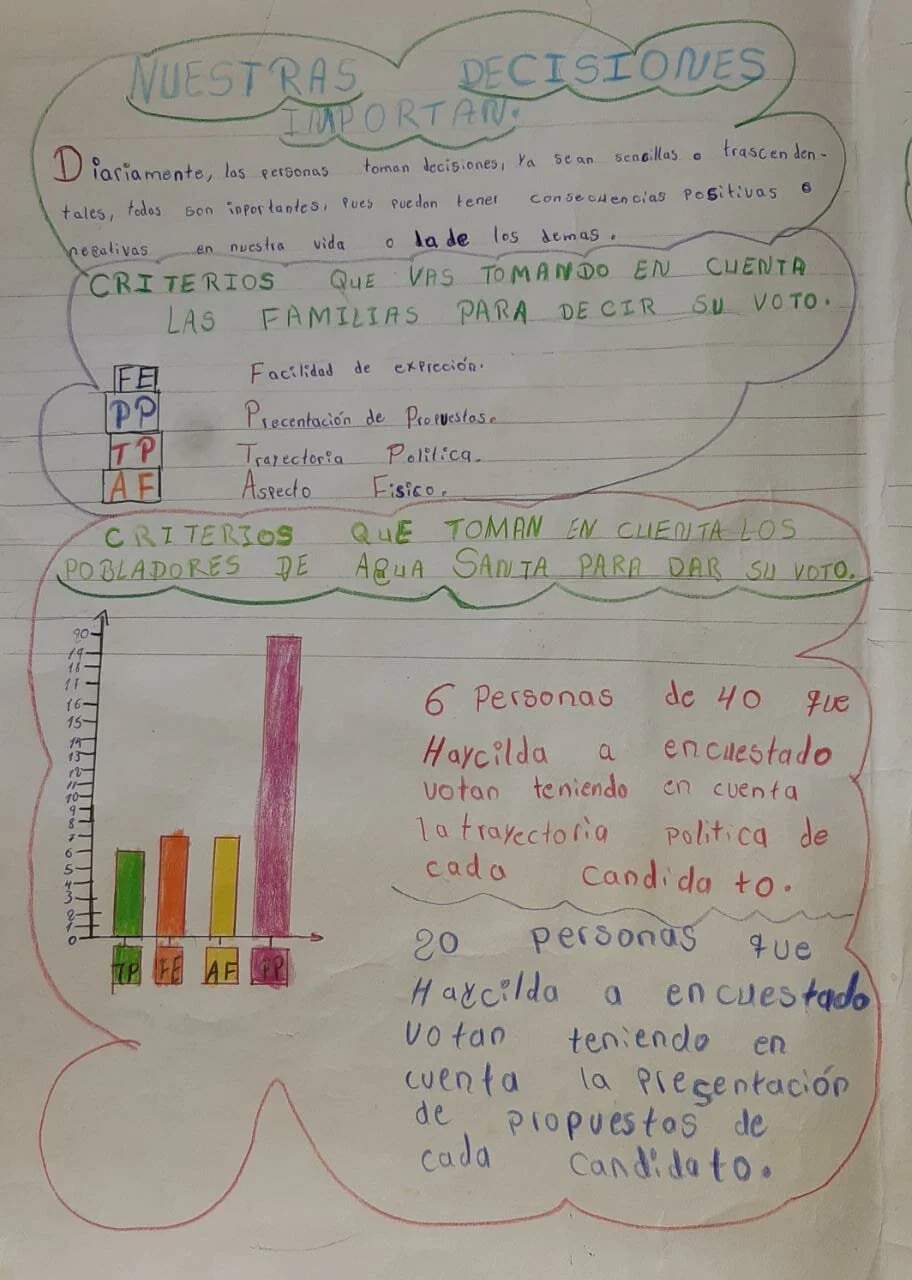 NUESTRAS DECISIONES
IMPORTAN.
Diariamente, las personas toman decisiones, ya sean sencillas o trascenden-
tales, todas son inportantes, pues puedan tener consecuencias positivas o
negativas en nuestra vida o la de los demas.
CRITERIOS QUE VAS TOMANDO EN CUENTA
LAS FAMILIAS PARA DECIR SU VOTO.
FE Facilidad de expreción.
PP Precentación de Propuestas.
TP Trayectoria Polilica.
AF Aspecto Fisico.
CRITERIOS QUE TOMAN EN CUENTA LOS
POBLADORES DE AGUA SANTA PARA DAR SU VOTO.
20
19
18
17
16
15
14
13
12
11
10
9
8
7
6
5
4
3
2
1
0
TP FE AF PP
6 Personas de 40 que
Haycilda a encuestado
votan teniendo en cuenta
la trayectoria politica de
cada candidato.
20 personas que
Haycilda a encuestado
votan teniendo en
cuenta la presentación
de propuestos de
cada candidato.